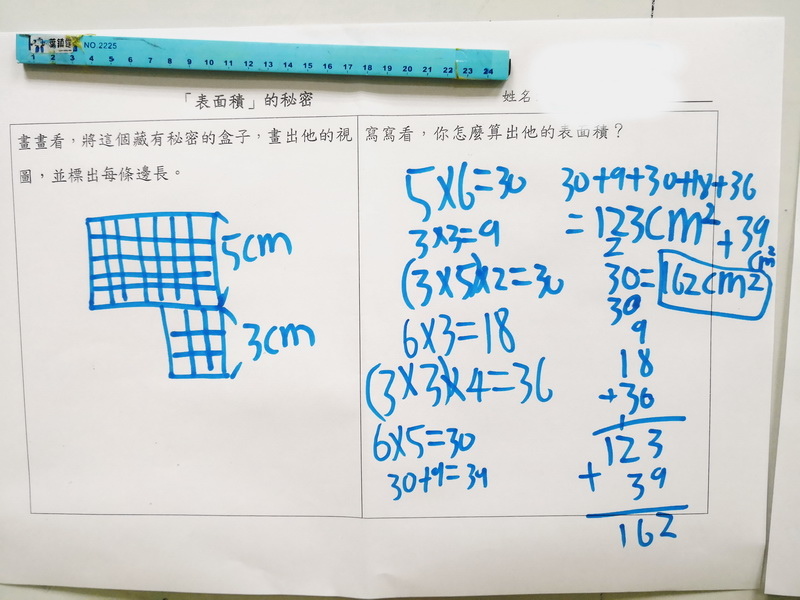 葉鎮源 NO.2225
1 2 3 4 5 6 7 8 9 10 11 12 13 14 15 16 17 18 19 20 21 22 23 24
「表面積」的秘密
姓名
畫畫看，將這個藏有秘密的盒子，畫出他的視
圖，並標出每條邊長。
5cm
3cm
寫寫看，你怎麼算出他的表面積？
5×6=30
3×3=9
(3×5)×2=30
6×3=18
(3×3)×4=36
6×5=30
30+9=39
30+9+30+18+36
=123cm²
+39
cm²
=162cm²
2
30
30
9
18
+36
1
123
+ 39
162